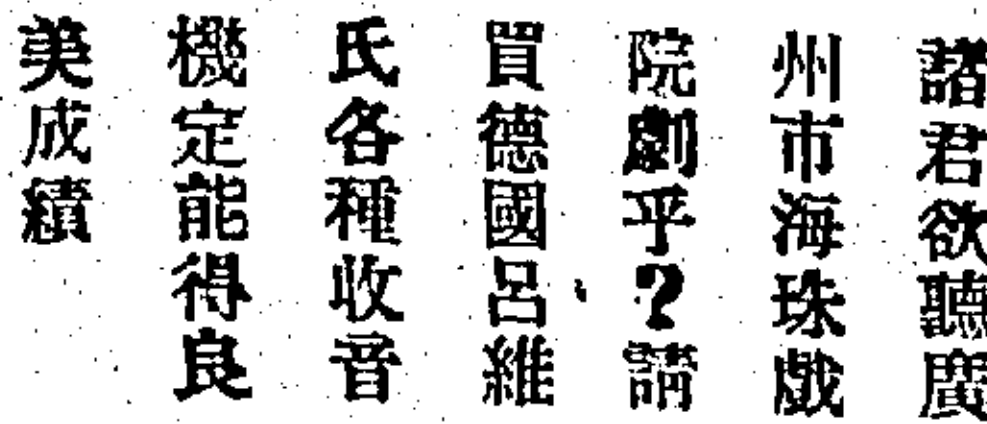 諸君欲聽廣
州市海珠戲
院劇乎?請
買德國呂維
氏各種收音
機定能得良
美成績